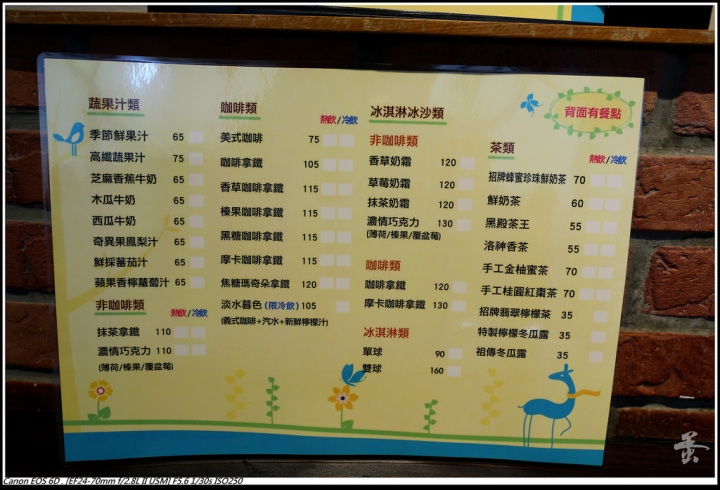 背面有餐點
蔬果汁類
季節鮮果汁 65
高纖蔬果汁 75
芝麻香蕉牛奶 65
木瓜牛奶 65
西瓜牛奶 65
奇異果鳳梨汁 65
鮮採蕃茄汁 65
蘋果香檸蘿蔔汁 65
非咖啡類 熱飲/冷飲
抹茶拿鐵 110
濃情巧克力 110
(薄荷/榛果/覆盆莓)
咖啡類
熱飲/冷飲
美式咖啡 75
咖啡拿鐵 105
香草咖啡拿鐵 115
榛果咖啡拿鐵 115
黑糖咖啡拿鐵 115
摩卡咖啡拿鐵 115
焦糖瑪奇朵拿鐵 120
淡水暮色(限冷飲) 105
(義式咖啡+汽水+新鮮檸檬汁)
冰淇淋冰沙類
非咖啡類
香草奶霜 120
草莓奶霜 120
抹茶奶霜 120
濃情巧克力 130
(薄荷/榛果/覆盆莓)
咖啡類
咖啡拿鐵 120
摩卡咖啡拿鐵 130
冰淇淋類
單球 90
雙球 160
茶類
熱飲/冷飲
招牌蜂蜜珍珠鮮奶茶 70
鮮奶茶 60
黑殿茶王 55
洛神香茶 55
手工金柚蜜茶 70
手工桂圓紅棗茶 70
招牌翡翠檸檬茶 35
特製檸檬冬瓜露 35
祖傳冬瓜露 35
Canon EOS 6D, [EF24-70mm f/2.8L II USM] F5.6 1/30s ISO250